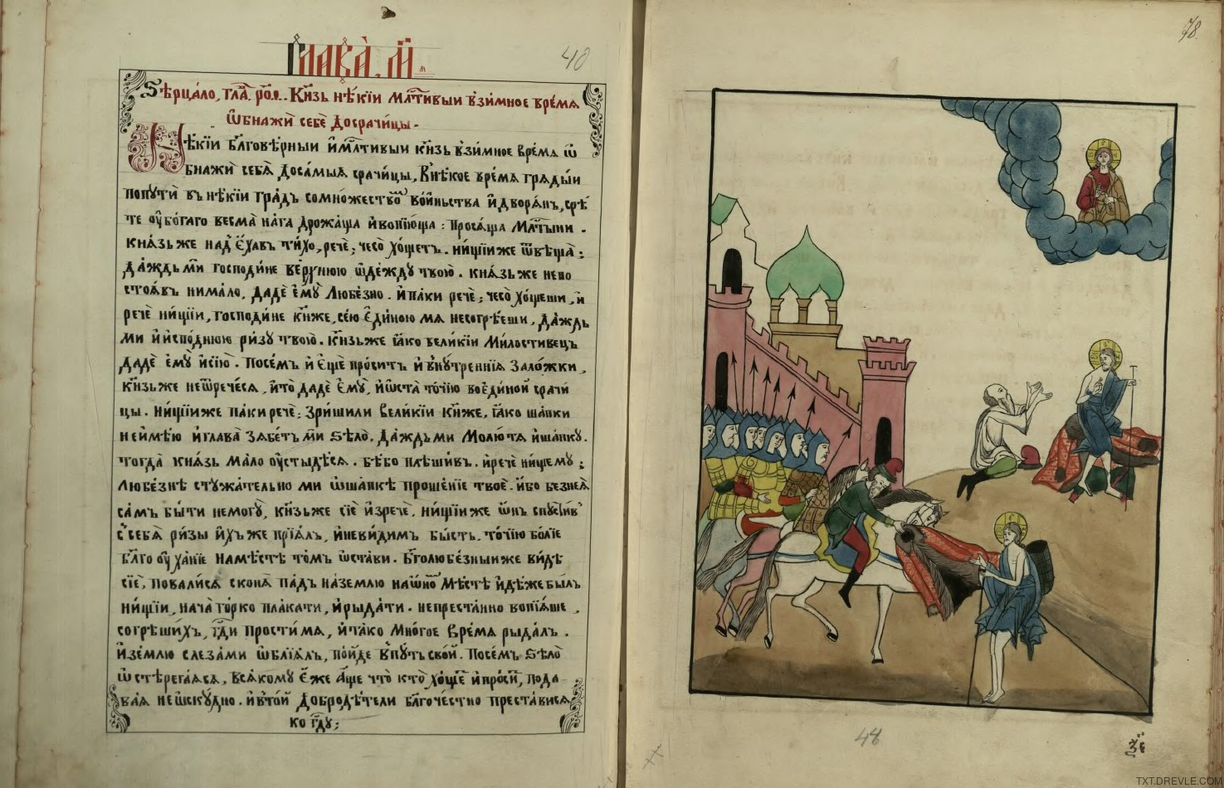 Глава̀. м҃.
40
Ѕѣрца́ло, гла҃. ро҃ѳ. Кн҃ѕь нѣ́кїи мл҃тивыи взи́мное вре́мѧ
ѿбнажѝ себѐ досрачи́цы.
Нѣ́кїи бл҃говѣ́рныи и҆мл҃тивыи кн҃ѕь взи́мное вре́мѧ ѿ
бнажѝ себѧ̀ досамыѧ срачи́цы, Внѣ́кое вре́мѧ грѧды́и
попутѝ въ нѣ́кїи гра́дъ сомно́жествоⷨ во́ииньства и҆дворѧ́н, срѣ́
те ᲂу҆бо́гаго весма̀ на́га дрожа́ща и҆вопїю́ща: прося́ща мл҃тыни.
кнѧ́зь же над̾ е҆́хавъ ти́хо, речѐ; чесо̀ хо́щетъ. ни́щїиже ѿвѣща̀:
да́ждь мѝ господи́не ве́рхнюю ѻ҆де́жду твою̀. кнѧ́зь же непо
стоѧ́въ нима́ло, дадѐ е҆мꙋ̀ любе́зно. и҆па́ки речѐ; чесо̀ хо́щеши, и҆
речѐ ни́щїи, господи́не кн҃же, се́ю е҆ди́ною мѧ несогрѣ́еши, да́ждь
ми и҆и҆спо́днюю ри́зу твою̀. кн҃ѕьже ꙗ҆́ко вели́кїи ми́лостивецъ
дадѐ е҆мꙋ̀ и҆сїю̀. посе́мъ и҆ е҆щѐ про́ситъ и҆ вну́треннїѧ зало́жки,
кн҃ѕьже неѿрече́сѧ, и҆то̀ дадѐ е҆мꙋ̀, и҆ѡ҆ста̀ то́чїю вое҆ди́ной срачи́
цы. ни́щїиже па́ки речѐ; зри́шили вели́кїи кн҃же, ꙗ҆́ко ша́пки
неимѣ́ю и҆глава̀ зѧ́бетъ мѝ ѕѣлѡ̀. да́ждь ми молю́тѧ и҆ша́пку.
тогда̀ кнѧ́зь ма́ло ᲂу҆стыдѣ́сѧ. бѣ̀бо плѣши́въ. и҆речѐ ни́щему;
любе́знѣ стужа́тельно ми ѡ҆ша́пкѣ проше́нїе твоѐ. и҆́бо безнеѧ̀
са́мъ бы́ти немогꙋ̀, кн҃ѕьже сїѐ и҆зречѐ, ни́щїиже ѻ҆́нъ спусти́въ
с̾ себѧ̀ ри́зы и҆́хъже прїѧ́лъ, и҆неви́димъ бы́сть. то́чїю бо́лїе
бл҃го ᲂу҆ха́нїе намѣ́стѣ то́мъ ѡ҆ста́ви. Бг҃олюбе́зныиже ви́дѣ
сїѐ, повали́сѧ сконѧ̀ па́дъ назе́млю наѡ҆́ноⷨ мѣ́стѣ и҆дѣ́же былъ
ни́щїи, нача̀ го́рко пла́кати, и҆рыда́ти. непреста́нно вопїѧ́ше,
согрѣши́хъ, гд҃и прости́мѧ, и҆та́ко мно́гое вре́мѧ рыда́лъ.
и҆зе́млю слеза́ми ѡ҆блїѧ́лъ, по́йде впу́ть свой. посе́мъ ѕѣлѡ̀
ѡ҆стѣрега́ѧсѧ, всѧ́кому е҆́же а҆́ще что̀ кто̀ хо́щеⷮ и҆про́сиⷮ, пода
ва́ѧ неѡ҆ску́дно. и҆вто́й добродѣ́тели бл҃гоче́стно преста́висѧ
ко гд҃у;
48
ѯ҃є
TXT.DREVLE.COM